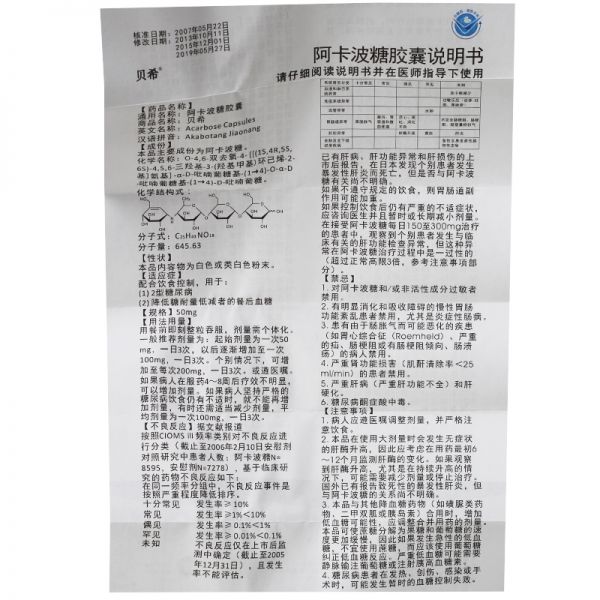 核准日期：2007年05月22日
修改日期：2013年10月11日
2015年12月01日
2019年05月27日
贝希®
阿卡波糖胶囊说明书
请仔细阅读说明书并在医师指导下使用
【药品名称】
通用名称：阿卡波糖胶囊
商品名称：贝希
英文名称：Acarbose Capsules
汉语拼音：Akabotang Jiaonang
【成份】
本品主要成份为阿卡波糖。
化学名称：O-4,6-双去氧-4-[[(1S,4R,5S,
6S)-4,5,6-三羟基-3-(羟基甲基)环己烯-2-
基]氨基]-α-D-吡喃葡糖基-(1→4)-O-α-D
-吡喃葡糖基-(1→4)-D-吡喃葡糖。
化学结构式：
分子式：C25H43NO18
分子量：645.63
【性状】
本品内容物为白色或类白色粉末。
【适应症】
配合饮食控制，用于：
(1)2型糖尿病
(2)降低糖耐量低减者的餐后血糖
【规格】50mg
【用法用量】
用餐前即刻整粒吞服，剂量需个体化。
一般推荐剂量为：起始剂量为一次50
mg，一日3次，以后逐渐增加至一次
100mg，一日3次。个别情况下，可增
加至每次200mg，一日3次。或遵医嘱。
如果病人在服药4～8周后疗效不明显，
可以增加剂量。如果病人坚持严格的
糖尿病饮食仍有不适时，就不能再增
加剂量，有时还需适当减少剂量，平
均剂量为一次100mg，一日3次。
【不良反应】据文献报道
按照CIOMS III频率类别对不良反应进
行分类（截止至2006年2月10日安慰剂
对照研究中患者人数：阿卡波糖N=
8595，安慰剂N=7278），基于临床研
究的药物不良反应如下：
在同一频率分组中，不良反应事件是
按照严重程度降低排序。
十分常见 发生率≥10%
常见 发生率≥1%<10%
偶见 发生率≥0.1%<1%
罕见 发生率≥0.01%<0.1%
未知 不良反应仅在上市后监
测中确定（截止至2005
年12月31日），且发生
率不能评估。
已有肝病、肝功能异常和肝损伤的上
市后报告，在日本发现个别患者发生
暴发性肝炎而死亡。但是否与阿卡波
糖有关尚不明确。
如果不遵守规定的饮食，则胃肠道副
作用可能加重。
如果控制饮食后仍有严重的不适症状，
应咨询医生并且暂时或长期减小剂量。
在接受阿卡波糖每日150至300mg治疗
的患者中，观察到个别患者发生与临
床有关的肝功能检查异常，但这种异
常在阿卡波糖治疗过程中是一过性的
（超过正常高限3倍，参考注意事项部
分）。
【禁忌】
1. 对阿卡波糖和/或非活性成分过敏者
禁用。
2. 有明显消化和吸收障碍的慢性胃肠
功能紊乱患者禁用，尤其是炎症性肠病。
3. 患有由于肠胀气而可能恶化的疾患
（如胃心综合征（Roemheld）、严重
的疝、肠梗阻或有肠梗阻倾向、肠溃
疡）的病人禁用。
4. 严重肾功能损害（肌酐清除率＜25
ml/min）的患者禁用。
5. 严重肝病（严重肝功能不全）和肝
硬化。
6. 糖尿病酮症酸中毒。
【注意事项】
1. 病人应遵医嘱调整剂量，并严格注
意饮食。
2. 本品在使用大剂量时会发生无症状
的肝酶升高，因此应考虑在用药最初6
～12个月监测肝酶的变化。如果观察
到肝酶升高，尤其是在持续升高的情
况下，可能需要减少剂量或停止治疗。
国外已有报告致死性的暴发性肝炎，但
与阿卡波糖的关系尚不明确。
3. 本品与其他降血糖药物（如磺脲类药
物、二甲双胍或胰岛素）合用时，增加
低血糖可能性，应调整合并用药的剂量。
本品可使蔗糖分解为果糖和葡萄糖的速
度更加缓慢，因此如果发生急性的低血
糖，不宜使用蔗糖，而应该使用葡萄糖
纠正低血糖反应。严重低血糖可能需要
静脉输注葡萄糖或注射胰高血糖素。
4. 糖尿病患者在发热、创伤、感染或手
术时，可能发生暂时的血糖控制失败。